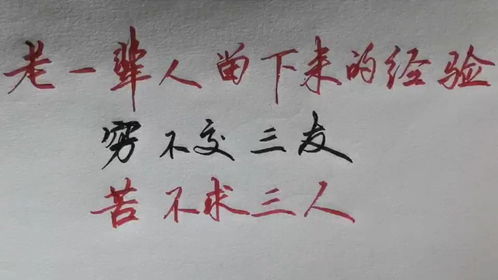 老一辈人留下来的经验
穷不交三友
苦不求三人